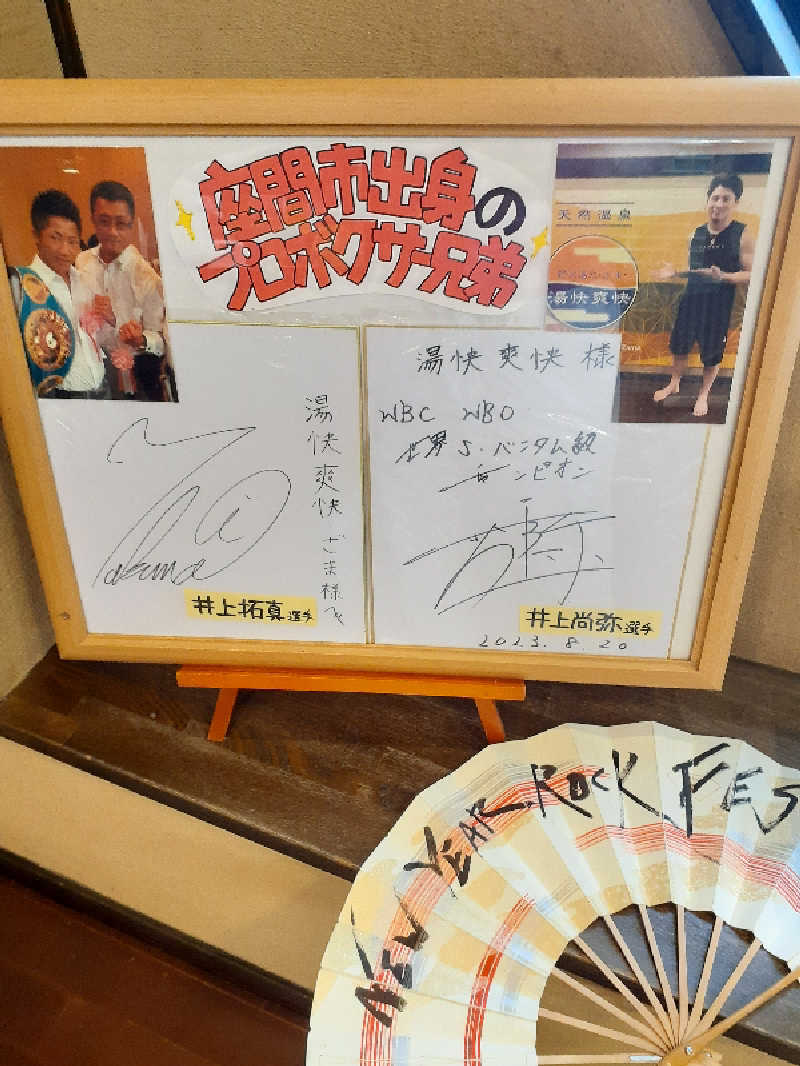 座間市出身の
プロボクサー兄弟
天然温泉
湯快爽快
湯快爽快ざま様へ
Takuma
井上拓真選手
湯快爽快様
WBC WBO
世界S・バンタム級
チャンピオン
井上尚弥選手
2023.8.20
NEW YEAR ROCK FES